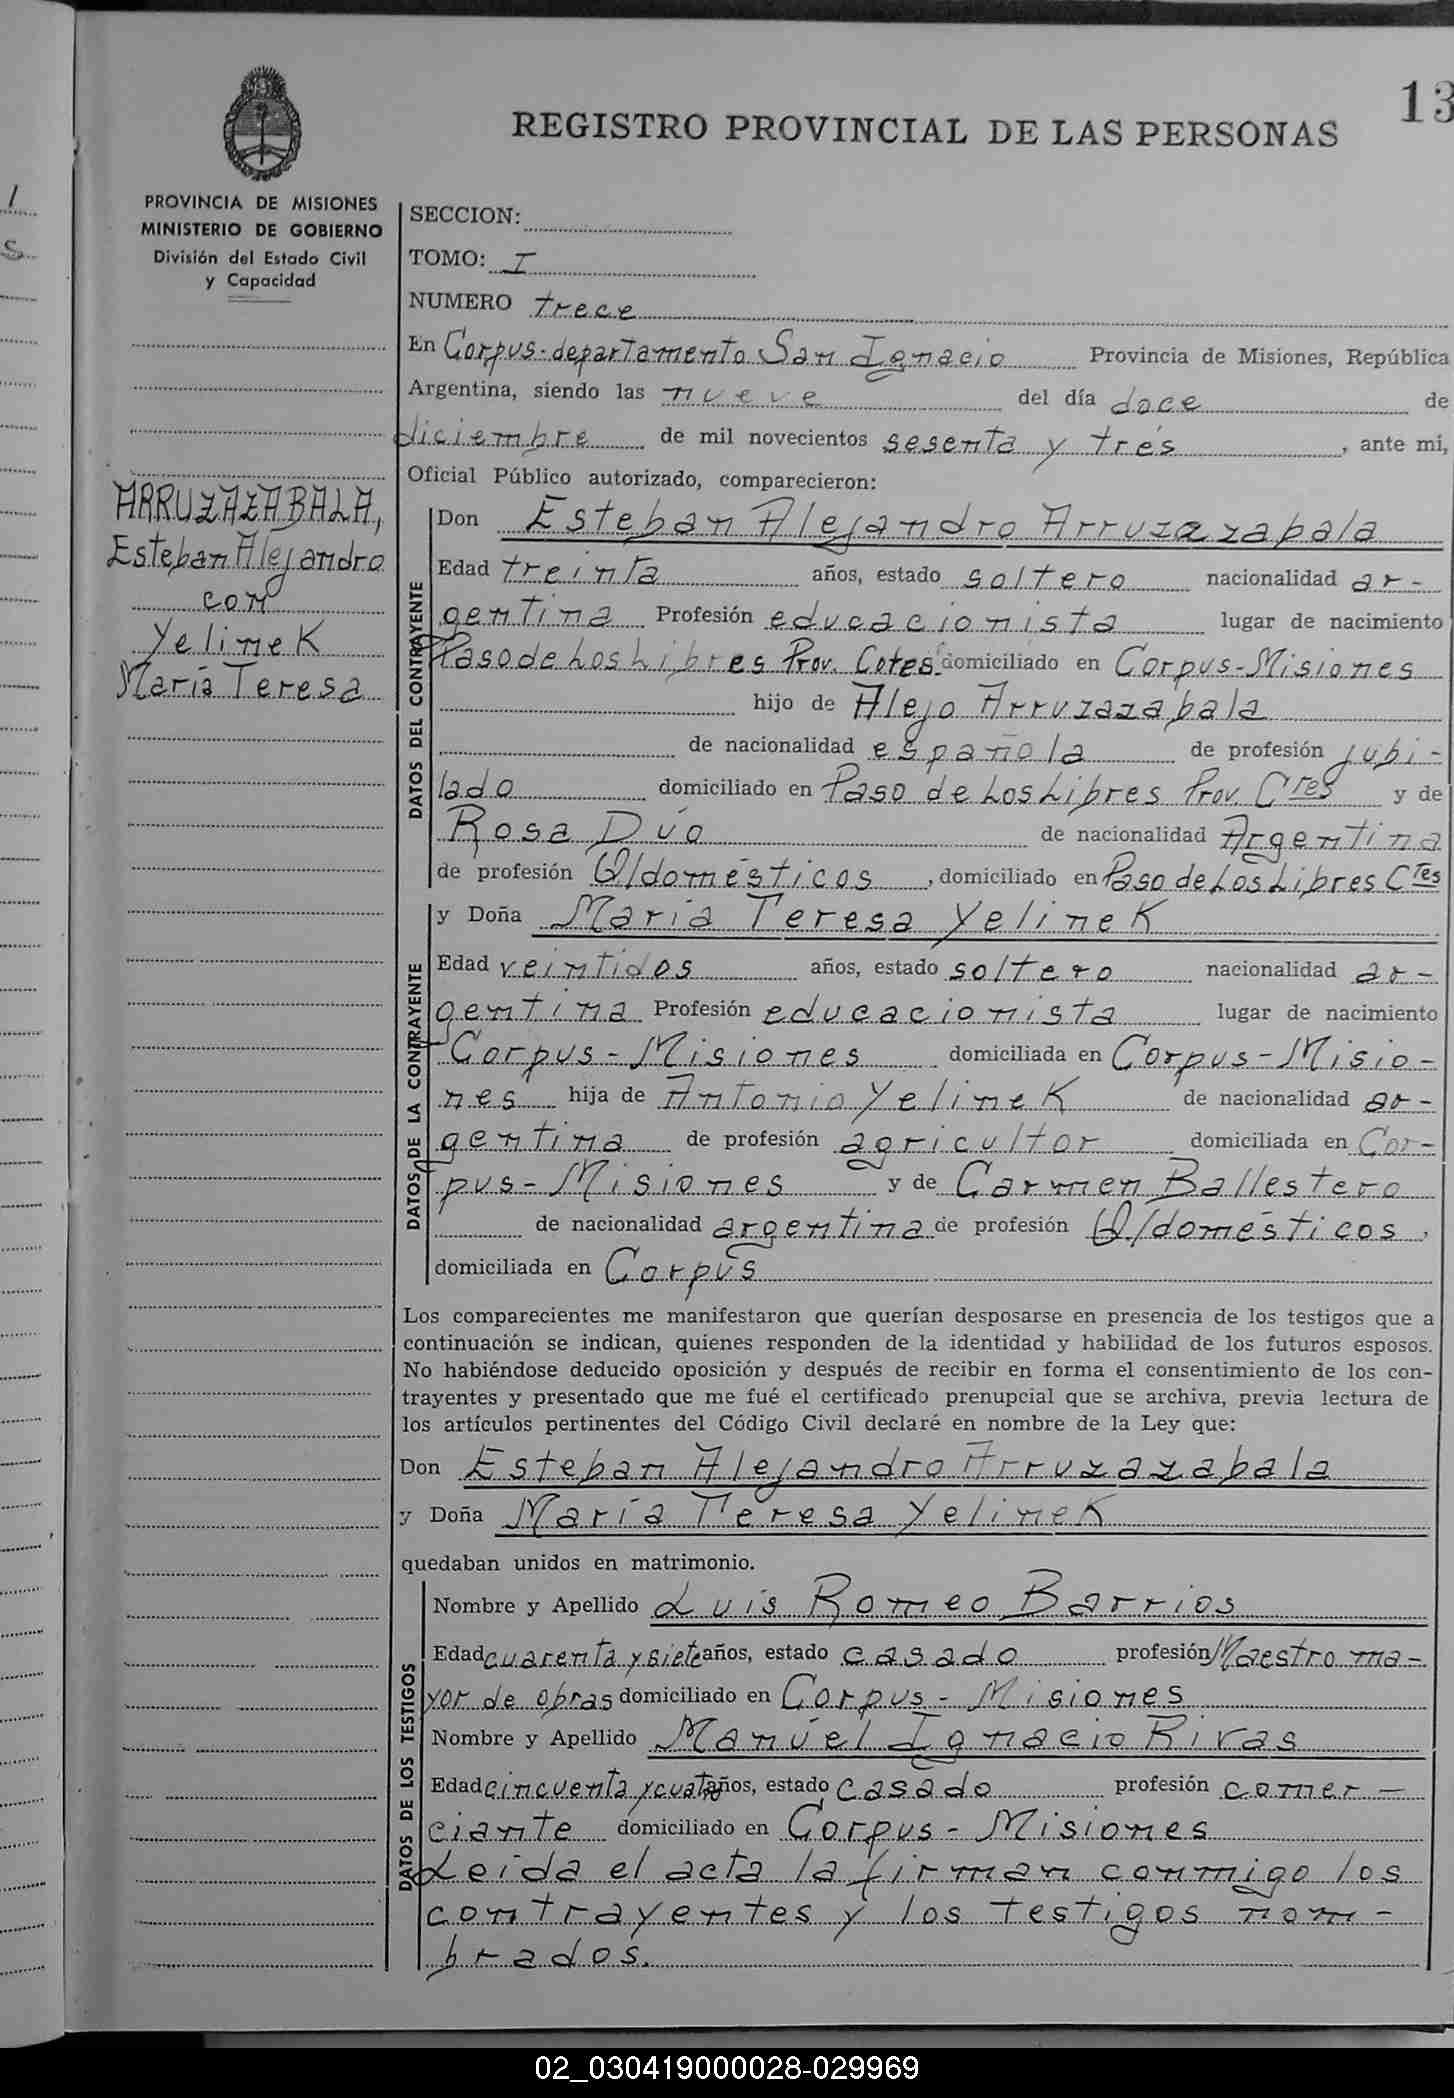 13
REGISTRO PROVINCIAL DE LAS PERSONAS
PROVINCIA DE MISIONES
MINISTERIO DE GOBIERNO
División del Estado Civil
y Capacidad
ARRUZAZABALA,
Esteban Alejandro
con
Yelinek
María Teresa
SECCION:
TOMO: I
NUMERO trece
En Corpus-departamento San Ignacio Provincia de Misiones, República
Argentina, siendo las nueve del día doce de
diciembre de mil novecientos sesenta y tres, ante mi,
Oficial Público autorizado, comparecieron:
DATOS DEL CONTRAYENTE
Don Esteban Alejandro Arruzazabala
Edad treinta años, estado soltero nacionalidad ar-
gentina Profesión educacionista lugar de nacimiento
Paso de Los Libres Prov. Cotes. domiciliado en Corpus-Misiones
hijo de Alejo Arruzazabala
de nacionalidad española de profesión jubi-
lado domiciliado en Paso de Los Libres Prov. Ctes y de
Rosa Dúo de nacionalidad Argentina
de profesión Q/domésticos, domiciliado en Paso de Los Libres Ctes
DATOS DE LA CONTRAYENTE
y Doña María Teresa Yelinek
Edad veintidos años, estado soltero nacionalidad ar-
gentina Profesión educacionista lugar de nacimiento
Corpus-Misiones domiciliada en Corpus-Misio-
nes hija de Antonio Yelinek de nacionalidad ar-
gentina de profesión agricultor domiciliada en Cor-
pus-Misiones y de Carmen Ballestero
de nacionalidad argentina de profesión Q/domésticos,
domiciliada en Corpus
Los comparecientes me manifestaron que querían desposarse en presencia de los testigos que a
continuación se indican, quienes responden de la identidad y habilidad de los futuros esposos.
No habiéndose deducido oposición y después de recibir en forma el consentimiento de los con-
trayentes y presentado que me fué el certificado prenupcial que se archiva, previa lectura de
los artículos pertinentes del Código Civil declaré en nombre de la Ley que:
Don Esteban Alejandro Arruzazabala
y Doña María Teresa Yelinek
quedaban unidos en matrimonio.
DATOS DE LOS TESTIGOS
Nombre y Apellido Luis Romeo Barrios
Edad cuarenta y siete años, estado casado profesión Maestro ma-
yor de obras domiciliado en Corpus-Misiones
Nombre y Apellido Manuel Ignacio Rivas
Edad cincuenta y cuatro años, estado casado profesión comer-
ciante domiciliado en Corpus-Misiones
Leída el acta la firman conmigo los
contrayentes y los testigos nom-
brados.
02_030419000028-029969